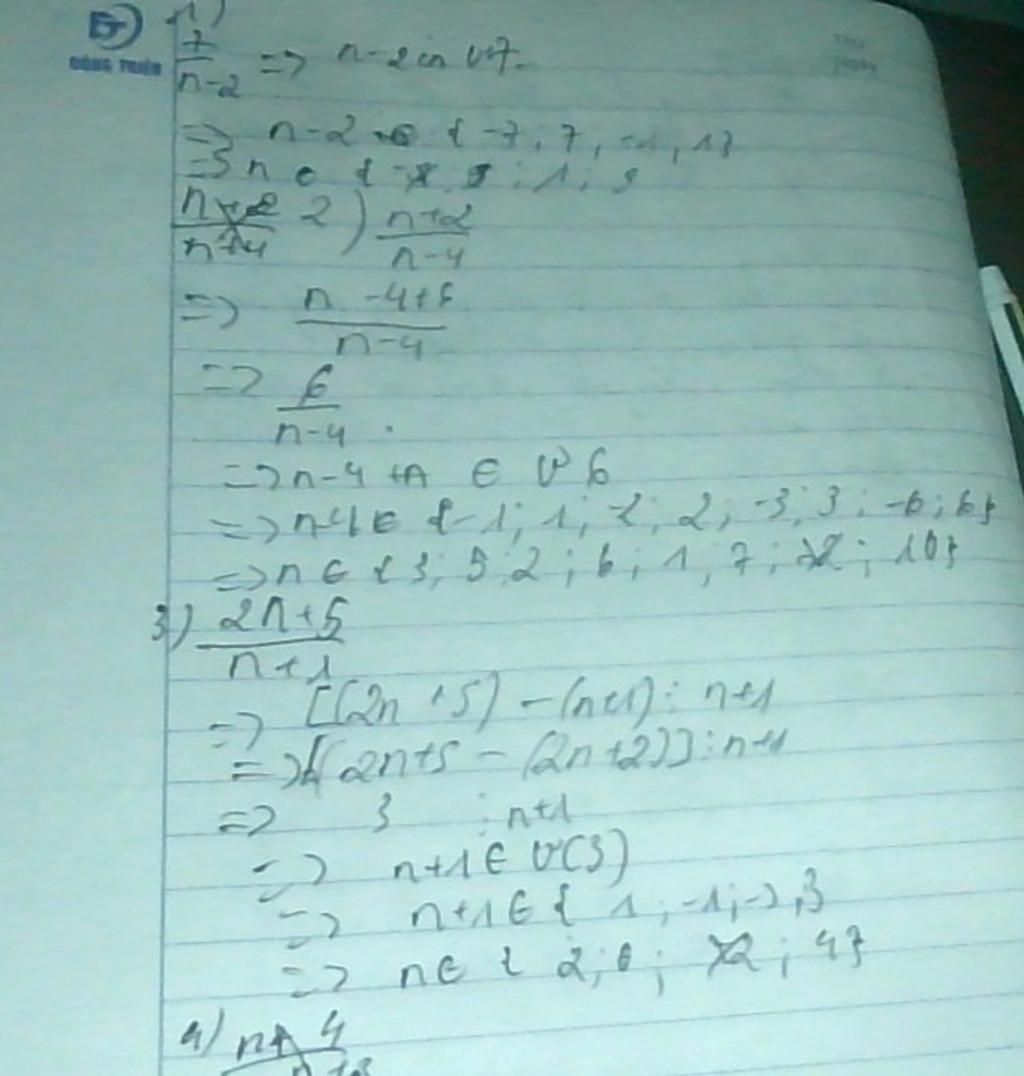 1)
7/(n-2) => n-2 Ư 7
=> n-2 ∈ {-7, 7, -1, 1}
=> n ∈ { 1;
2) (n+2)/(n-4)
=> (n-4+6)/(n-4)
=> 6/(n-4)
=> n-4 ∈ Ư 6
=> n-4 ∈ {-1; 1; -2; 2; -3; 3; -6; 6}
=> n ∈ {3; 5; 2; 6; 1; 7; -2; 10}
3) (2n+5)/(n+1)
=> [(2n+5) - (n+1) ⋮ n+1
=> [(2n+5 - (2n+2)] ⋮ n+1
=> 3 ⋮ n+1
=> n+1 ∈ Ư(3)
=> n+1 ∈ { 1; -1; -3, 3
=> n ∈ { 2; 0; 2; 4}
4) n+ 4